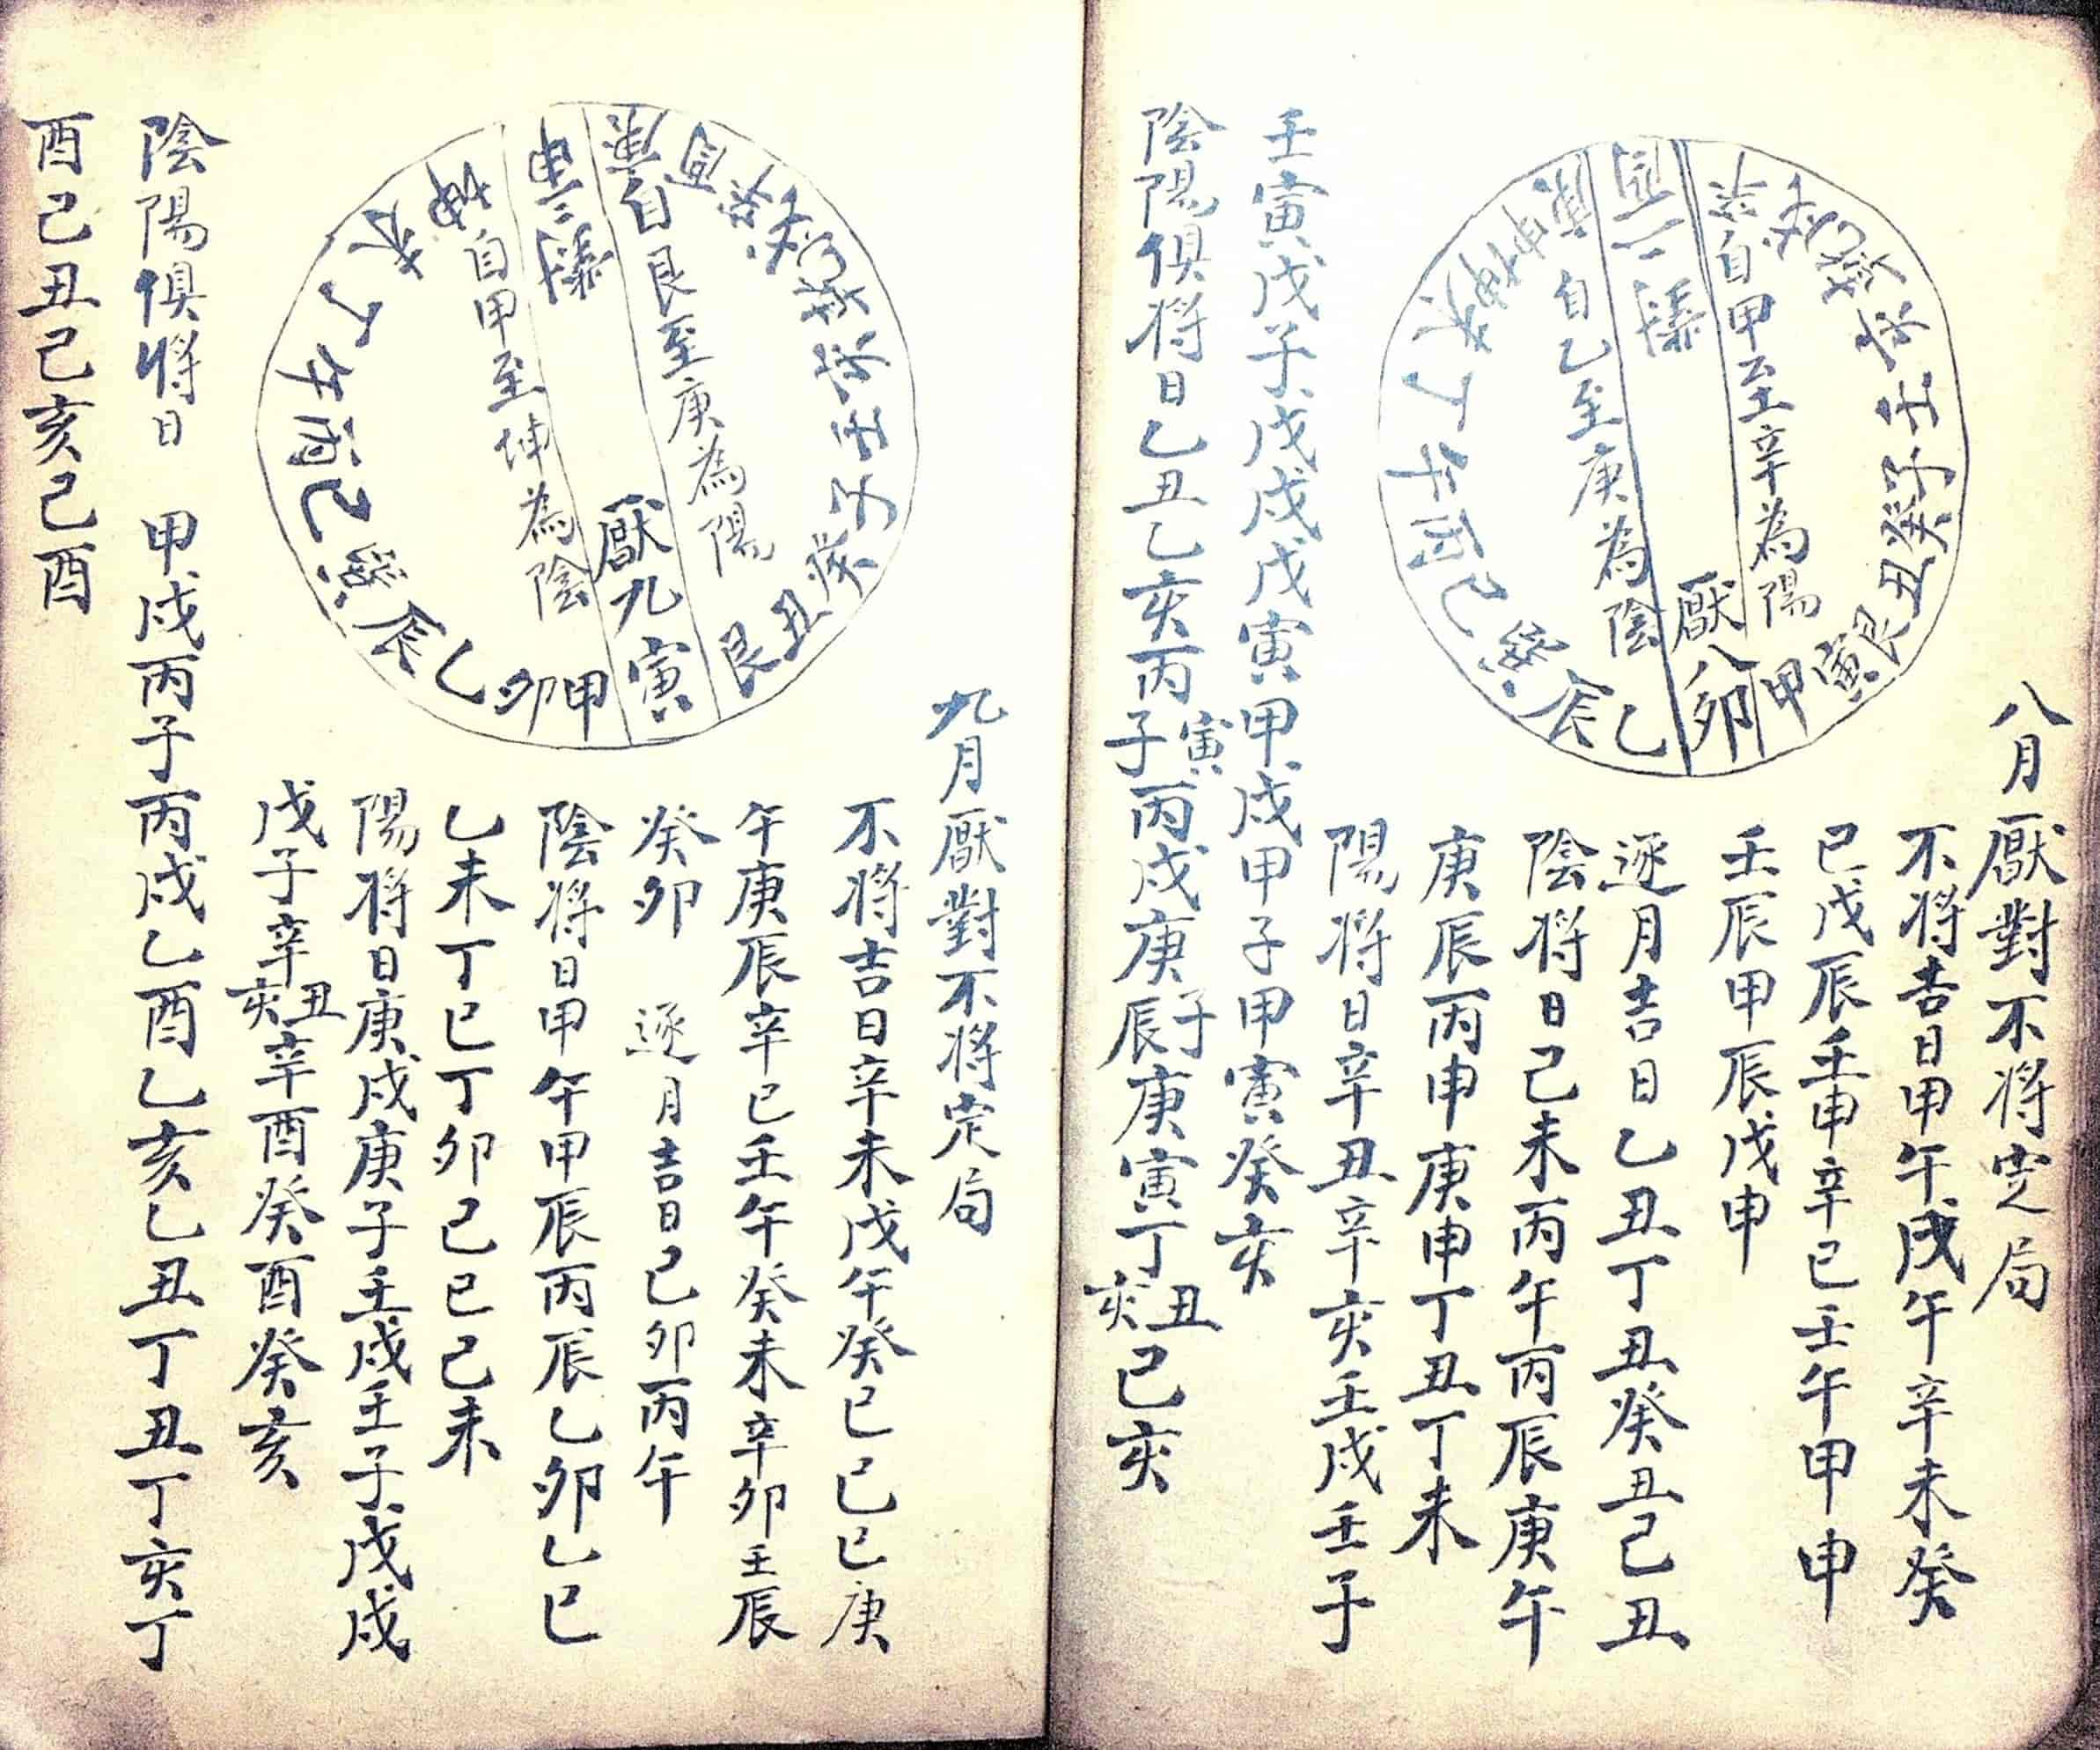 八月厭對不將定局
不將吉日甲午戊午辛未癸
巳戊辰壬申辛巳壬午甲申
壬辰甲辰戊申
逐月吉日乙丑丁丑癸丑己丑
陰將日己未丙午丙辰庚午
庚辰丙申庚申丁丑丁未
陽將日辛丑辛亥壬戌壬子
壬寅戊子戊戌戊寅甲戌甲子甲寅癸亥
陰陽俱將日乙丑乙亥丙子寅丙戌庚辰子庚寅丁亥丑己亥
自甲至辛為陽
厭八卯
自乙至庚為陰
甲寅艮丑癸子壬
乙辰
巳丙午丁未坤申
九月厭對不將定局
不將吉日辛未戊午癸巳己巳庚
午庚辰辛巳壬午癸未辛卯壬辰
癸卯 逐月吉日己卯丙午
陰將日甲午甲辰丙辰乙卯乙巳
乙未丁巳丁卯己巳己未
陽將日庚戌庚子壬戌壬子戊戌
戊子辛亥丑辛酉癸酉癸亥
陰陽俱將日 甲戌丙子丙戌乙酉乙亥乙丑丁丑丁亥丁
酉己丑己亥己酉
自艮至庚為陽
厭九寅
自甲至坤為陰
艮丑癸子壬
甲卯乙辰
巳丙午丁未坤